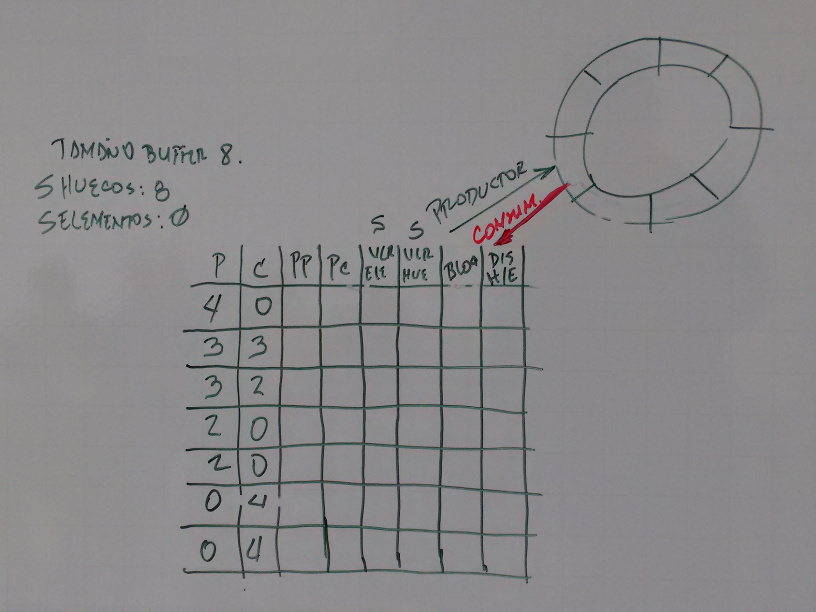 TAMAÑO BUFFER 8.
S HUECOS: 8
S ELEMENTOS: 0
PRODUCTOR
CONSUM.
S S
P C PP PC VLR ELE VLR HUE BLOQ DIS H/E
4 0
3 3
3 2
2 0
2 0
0 4
0 4